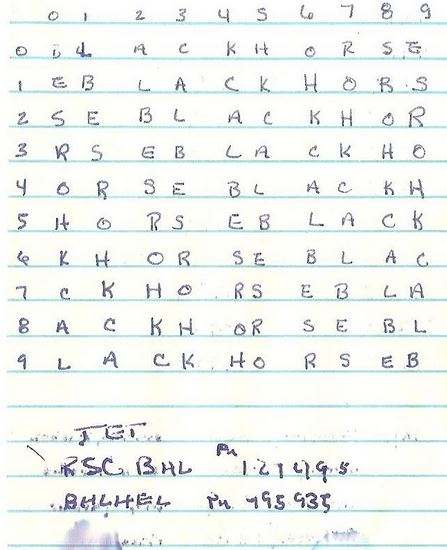 0 1 2 3 4 5 6 7 8 9
0 B L A C K H O R S E
1 E B L A C K H O R S
2 S E B L A C K H O R
3 R S E B L A C K H O
4 O R S E B L A C K H
5 H O R S E B L A C K
6 K H O R S E B L A C
7 C K H O R S E B L A
8 A C K H O R S E B L
9 L A C K H O R S E B
RSC BHL
BHLHEL